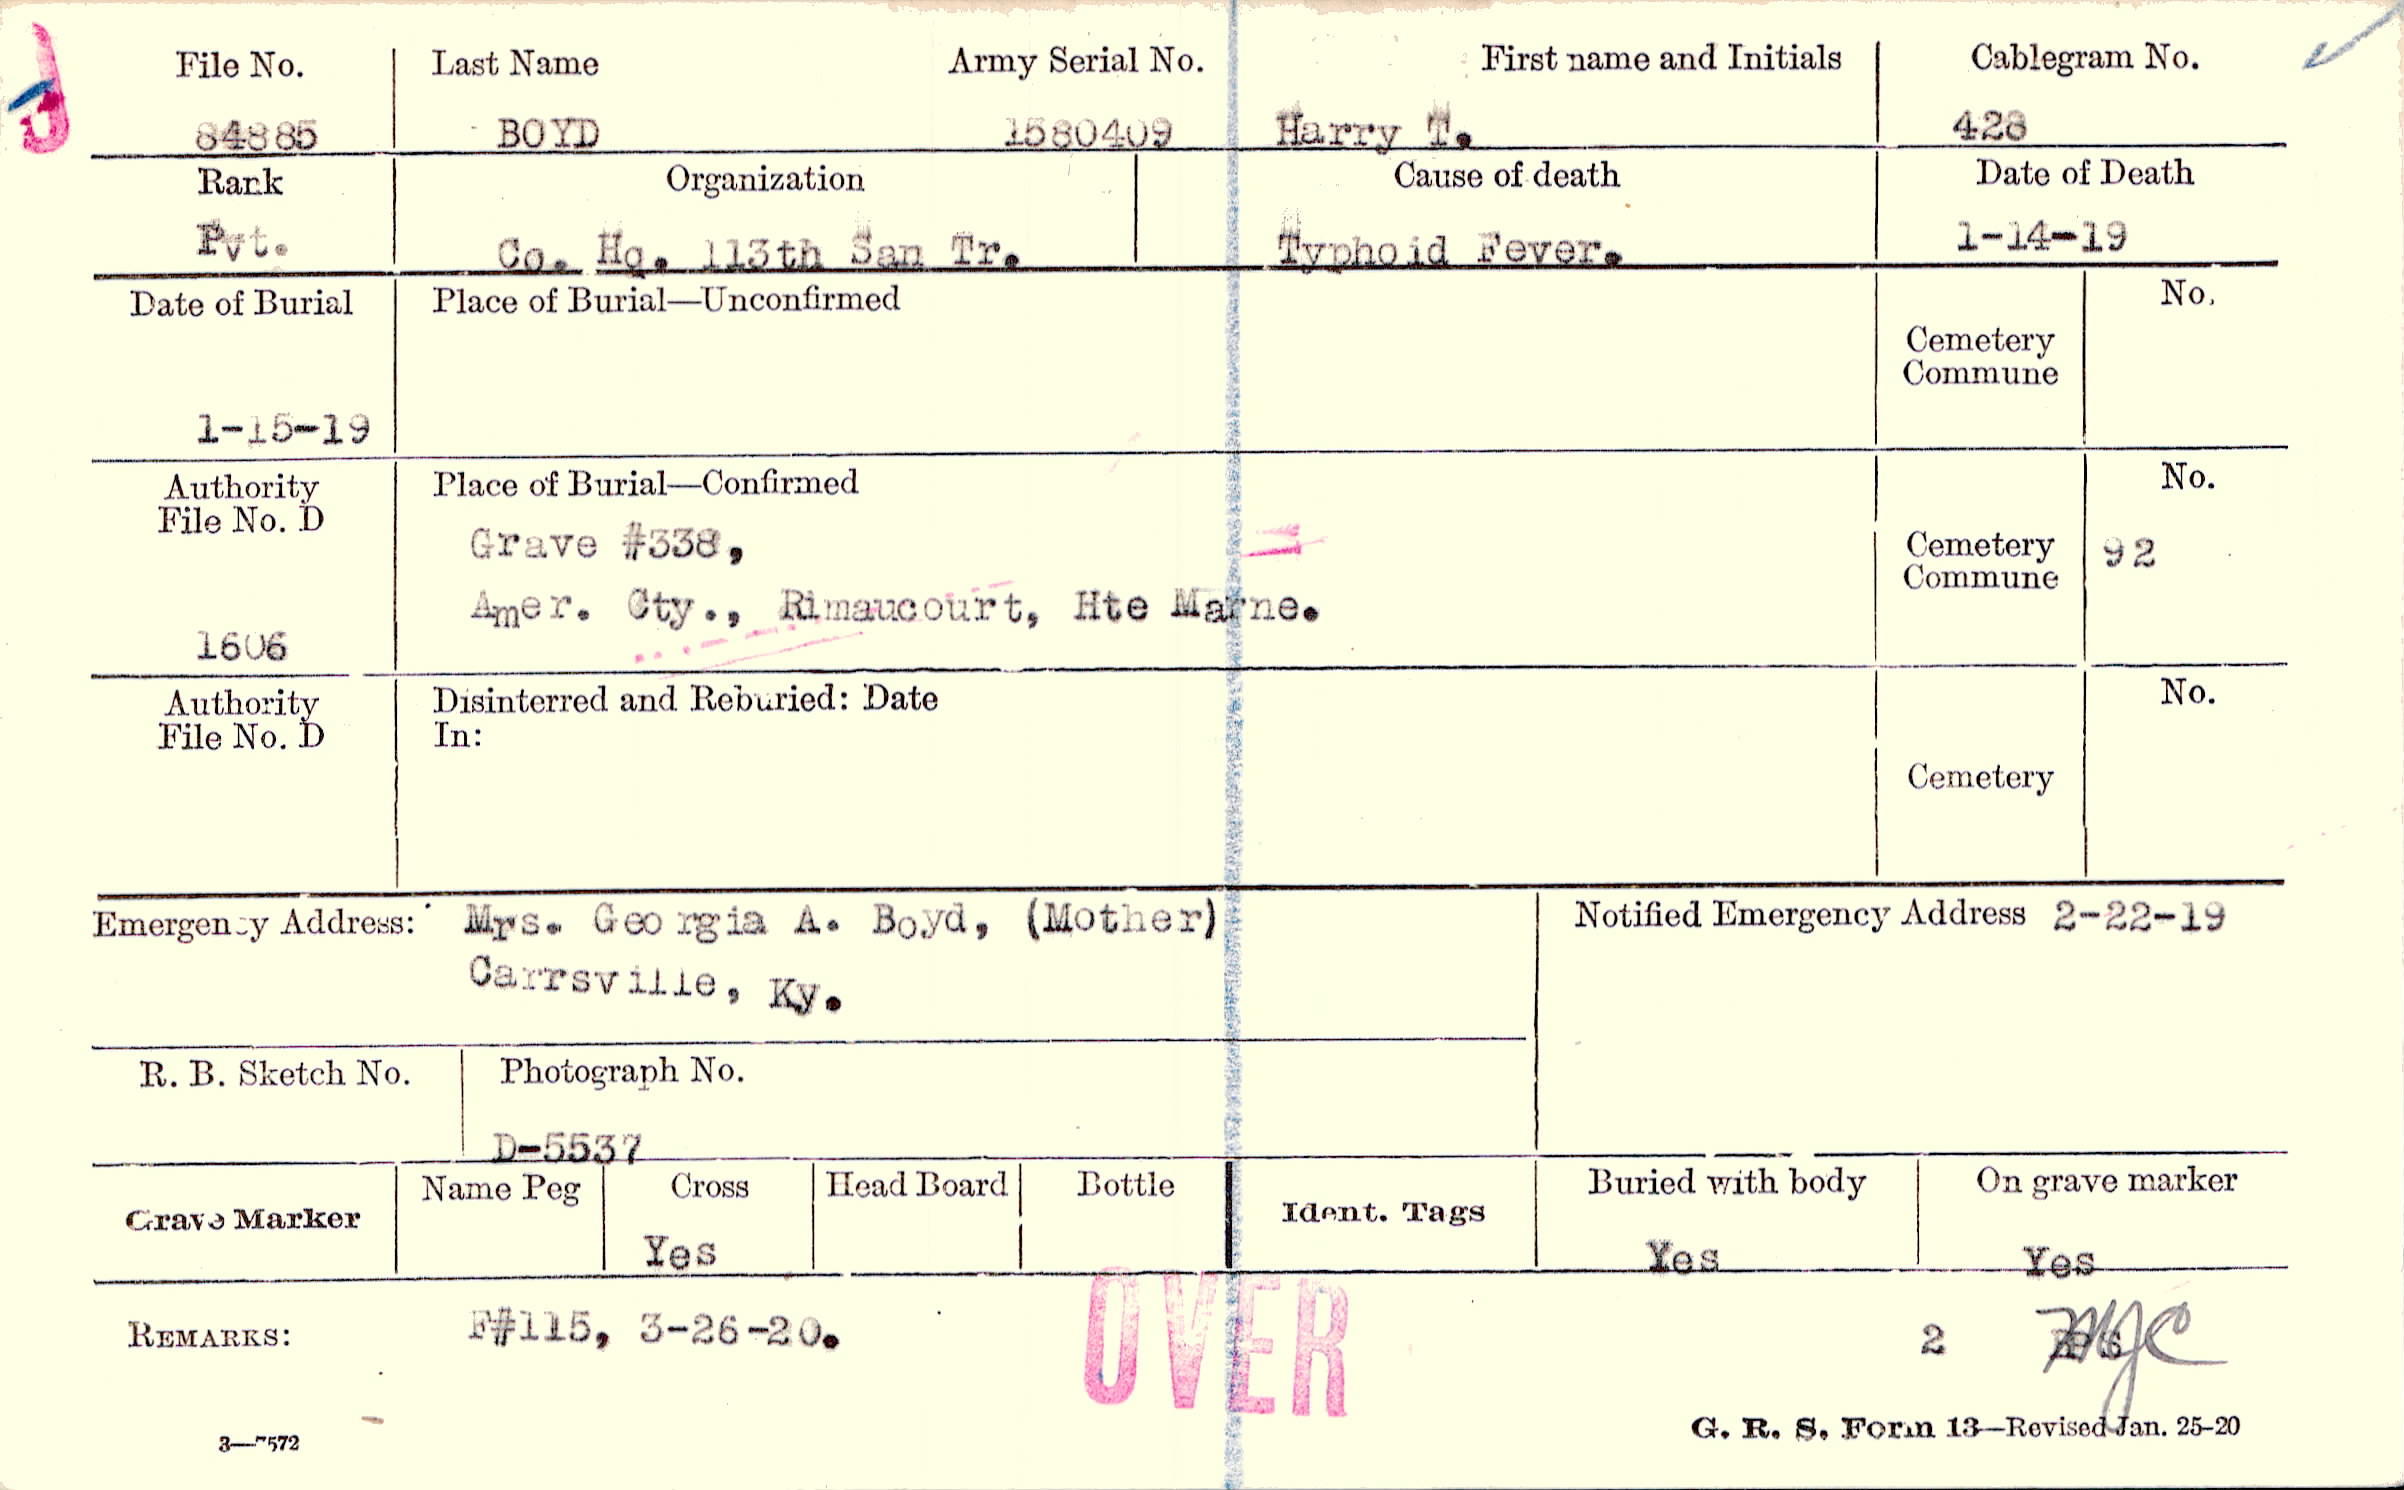 File No. Last Name Army Serial No. First name and Initials Cablegram No.
84885 BOYD 1580409 Harry T. 428
Rank Organization Cause of death Date of Death
Pvt. Co. Hq. 113th San Tr. Typhoid Fever. 1-14-19
Date of Burial Place of Burial—Unconfirmed No.
Cemetery
Commune
1-15-19
Authority Place of Burial—Confirmed No.
File No. D
Grave #338,
Cemetery 92
Commune
Amer. Cty., Rimaucourt, Hte Marne.
1606
Authority Disinterred and Reburied: Date No.
File No. D In:
Cemetery
Emergency Address: Mrs. Georgia A. Boyd, (Mother) Notified Emergency Address 2-22-19
Carrsville, Ky.
R. B. Sketch No. Photograph No.
D-5537
Name Peg Cross Head Board Bottle Buried with body On grave marker
Grave Marker Ident. Tags
Yes Yes Yes
REMARKS: F#115, 3-26-20. OVER 2 MJC
3—7572 G. R. S. Form 13—Revised Jan. 25-20